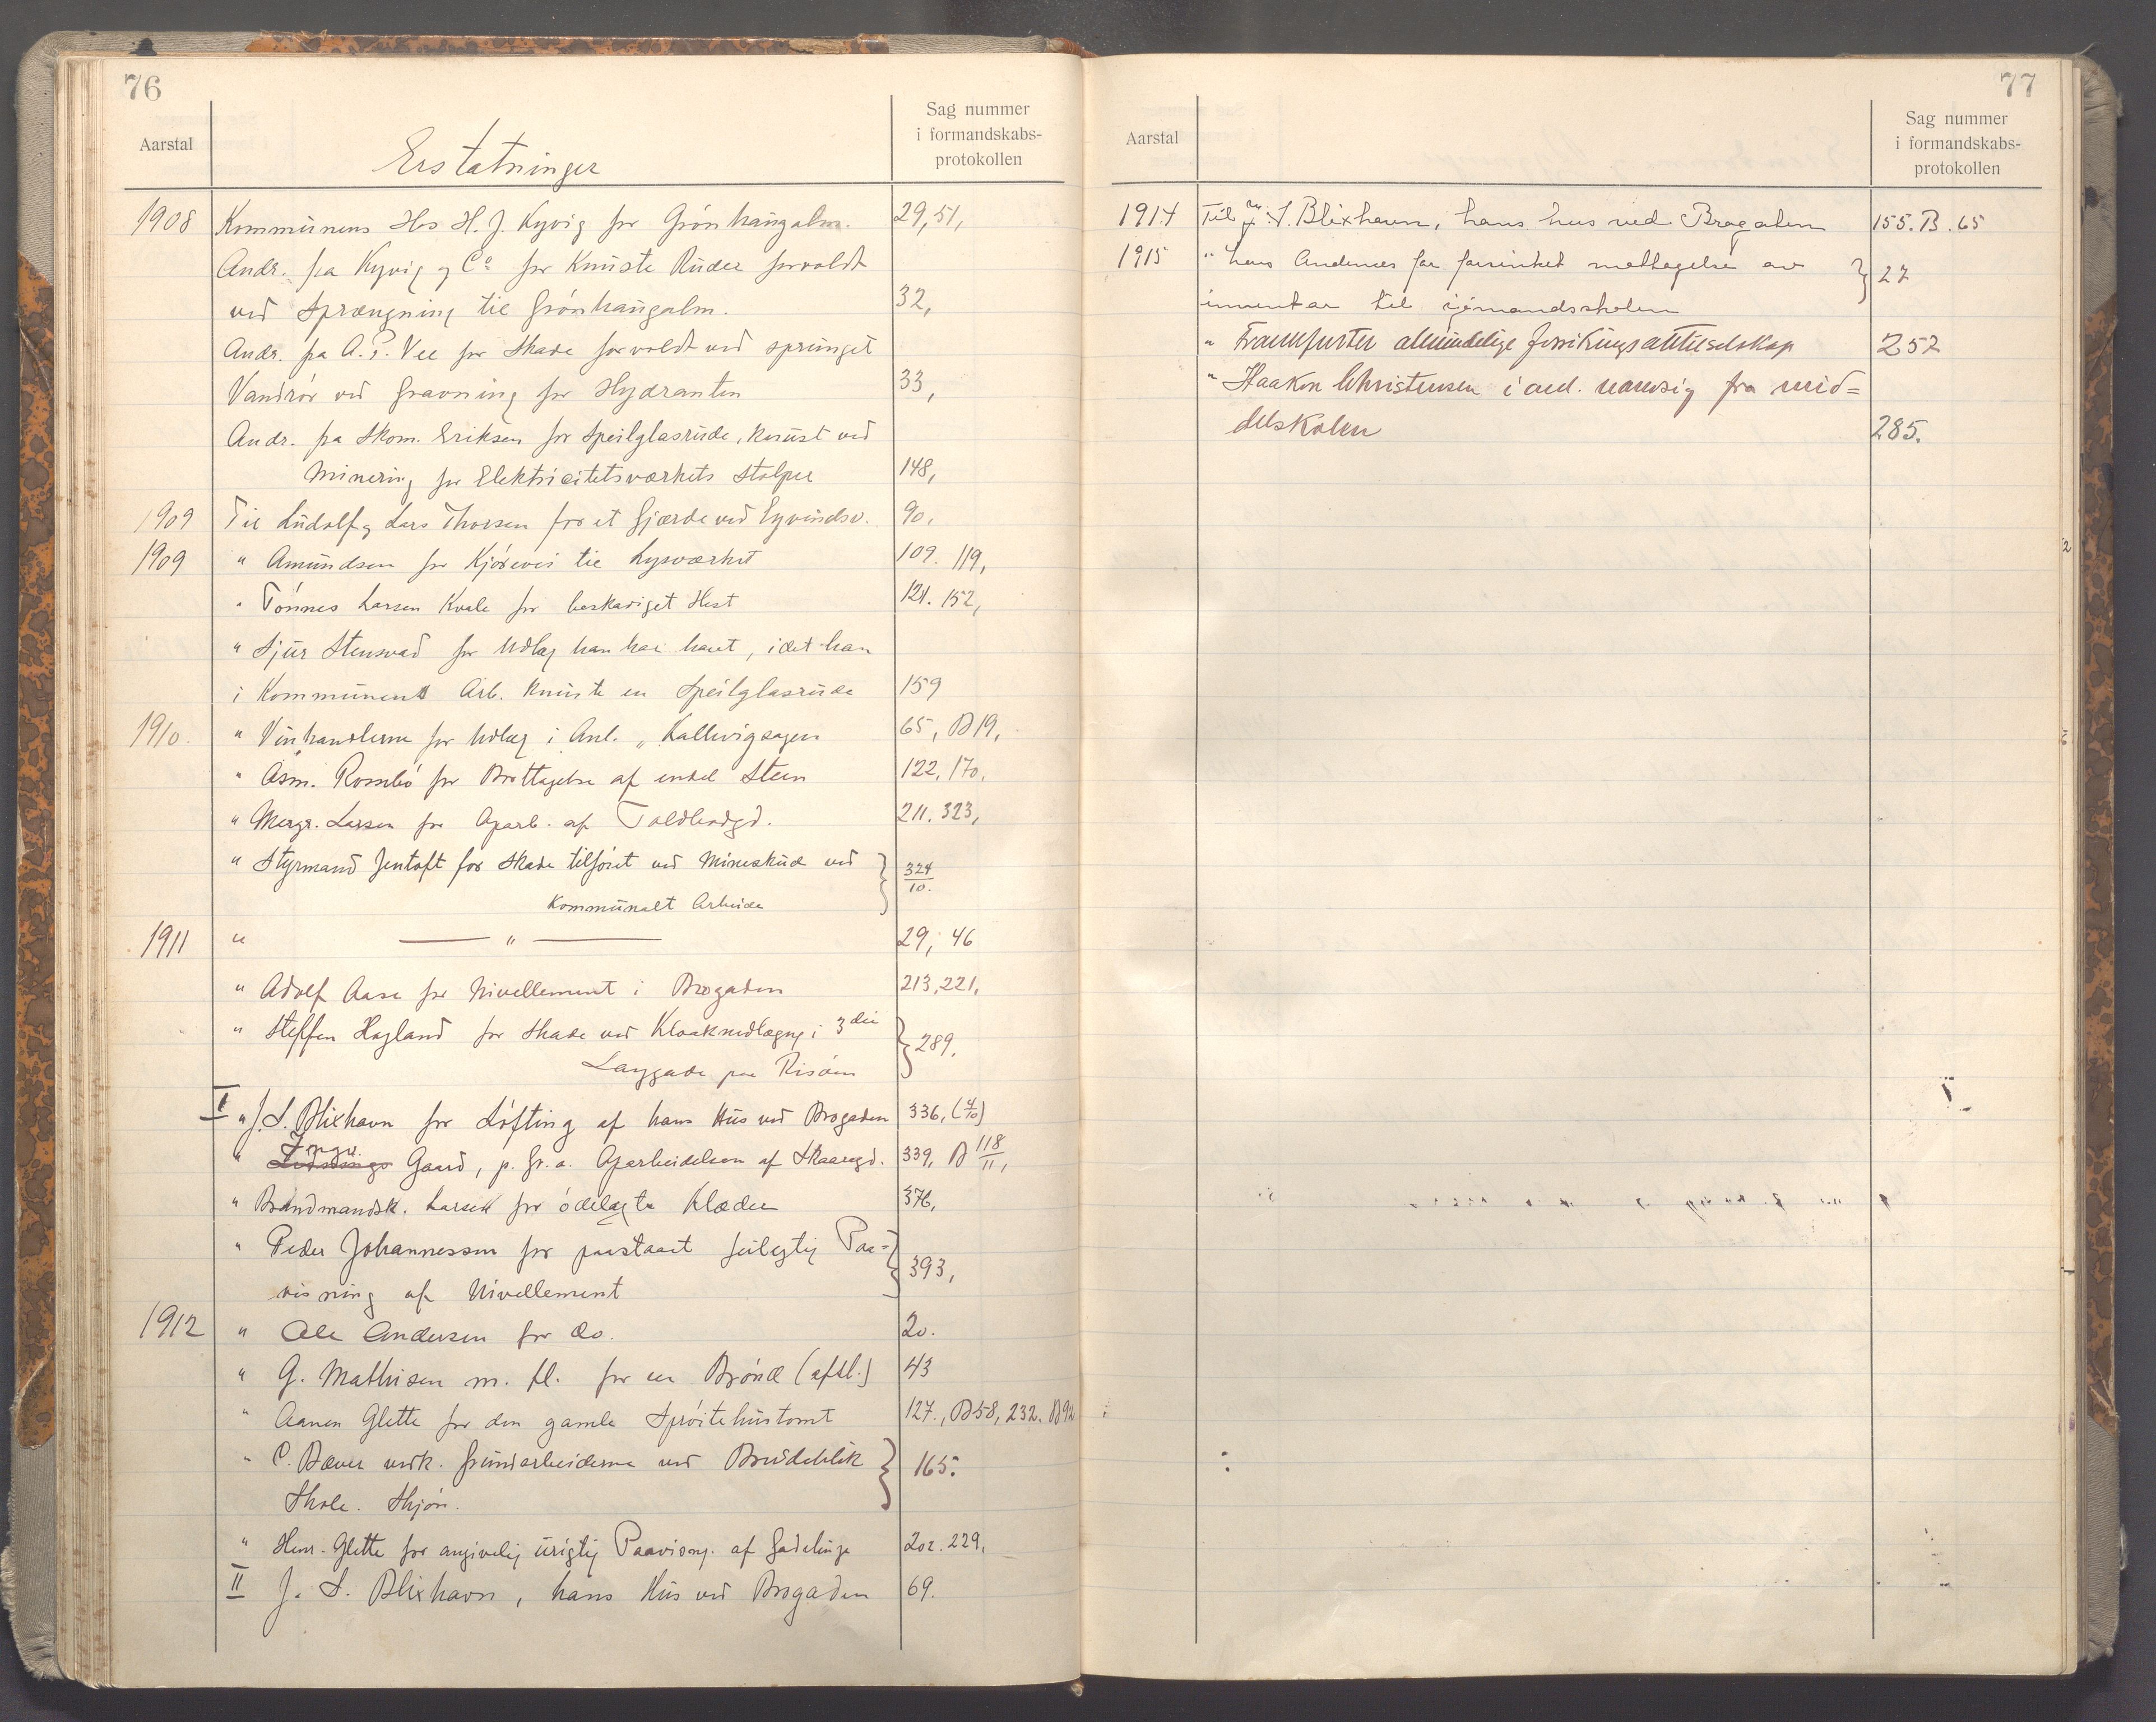 76
Aarstal
Erstatninger
Sag nummer
i formandskabs-
protokollen
1908 Kommunens Hos H. J. Kyvig for Grónhaugalm. 29, 51,
Andr. fra Kyvig og Co for Knuste Ruder forvoldt
ved Sprængning til Grónhaugalm. 32,
Andr. fra A. P. Vee for Skade forvoldt ved sprunget
Vandrór ved Gravning for Hydranten 33,
Andr. fra Skom. Eriksen for Speilglasrude, knust ved
Minering for Elektricitetsværkets Stolper 148,
1909 Til Ludolf og Lars Thorsen for et Gjærde ved Eyvindsv. 90.
1909 " Amundsen for Kjórevei til Lysværket 109. 119,
" Tónnes Larsen Kvale for beskadiget Hest 121. 152,
" Sjur Stensvad for Udlæg han har havt, idet han
i Kommunens Arb. knuste en Speilglasrude 159
1910. " Vinhandlerne for Udlæg i Anl. „Kallevigsagen 65, B 19,
" Asm. Rossebó for Borttagelse af endel Sten 122, 170.
" Margr. Larsen for Oparb. af Toldbodgd. 211. 323,
" Styrmand Jentoft for Skade tilfóiet ved Mineskud ved } 324/10.
Kommunalt Arbeide
1911 " — " — 29, 46
" Adolf Aase for Nivellement i Brogaden 213, 221,
" Steffen Hagland for Skade ved Kloaknedlægng i 3die } 289.
Langgade paa Risóen
I " J. S. Blixhavn for Lófting af hans Hus ved Brogaden 336, (4/10)
" Gaard, p. Gr. a. Oparbeidelsen af Skaaregd. 339, B 118/11,
" Brandmandsk. Larsen for ódelagte Klæder 376,
" Peder Johannessen for paastaaet feilagtig Paa= } 393,
visning af Nivellement
1912 " Ole Andersen for do. 20.
" G. Mathisen m. fl. for en Brónd (afsl.) 43
" Aanen Glette for den gamle Spróitehustomt 127., B 58, 232. B 92
" C. Bauer vedk. Grundarbeiderne ved Breidablik } 165.
Skole. Skjón.
" Henr. Glette for angivelig urigtig Paavisng. af Gadelinje 202. 229,
II J. S. Blixhavn, hans Hus ved Brogaden 69.
77
Aarstal
Sag nummer
i formandskabs-
protokollen
1914 Til J. S. Blixhavn, hans hus ved Brogaten 155. B. 65
1915 " Lars Andenes for forsinket mottagelse av } 27
inventar til sjømandsskolen
" Frankfurter almindelige forsikringsaktieselskap 252
" Haakon Christensen i anl. nanvsig fra mid=
delskolen 285.